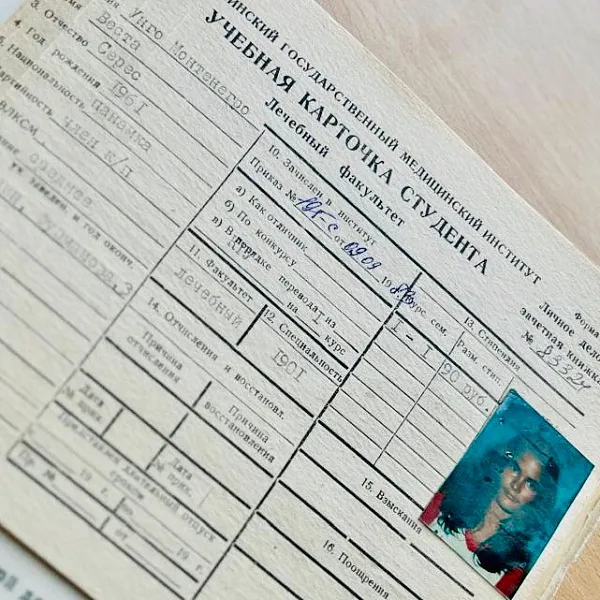 ИНСКИЙ ГОСУДАРСТВЕННЫЙ МЕДИЦИНСКИЙ ИНСТИТУТ
УЧЕБНАЯ КАРТОЧКА СТУДЕНТА
Лечебный факультет
Форма
Личное дело
зачетная книжка
№ 83324
Унго Монтенегро
Веста
3. Отчество Серес
4. Год рождения 1961
5. Национальность панамка
член к/п
ВЛКСМ
и год оконч.
10. Зачислен в институт
Приказ № 195-с от 02.09 198
а) Как отличник
б) По конкурсу
в) В порядке перевода из
на I курс
11. Факультет
лечебный
12. Специальность
1901
13. Стипендия
Курс, сем.
Разм. стип.
I - I
90 руб.
14. Отчисления и восстановл.
Причина отчисления
Причина восстановления
Дата
№ прик.
Дата
№ прик.
Предоставлен длительный отпуск
Пр. №
от 19 г.
15. Взыскания
16. Поощрения